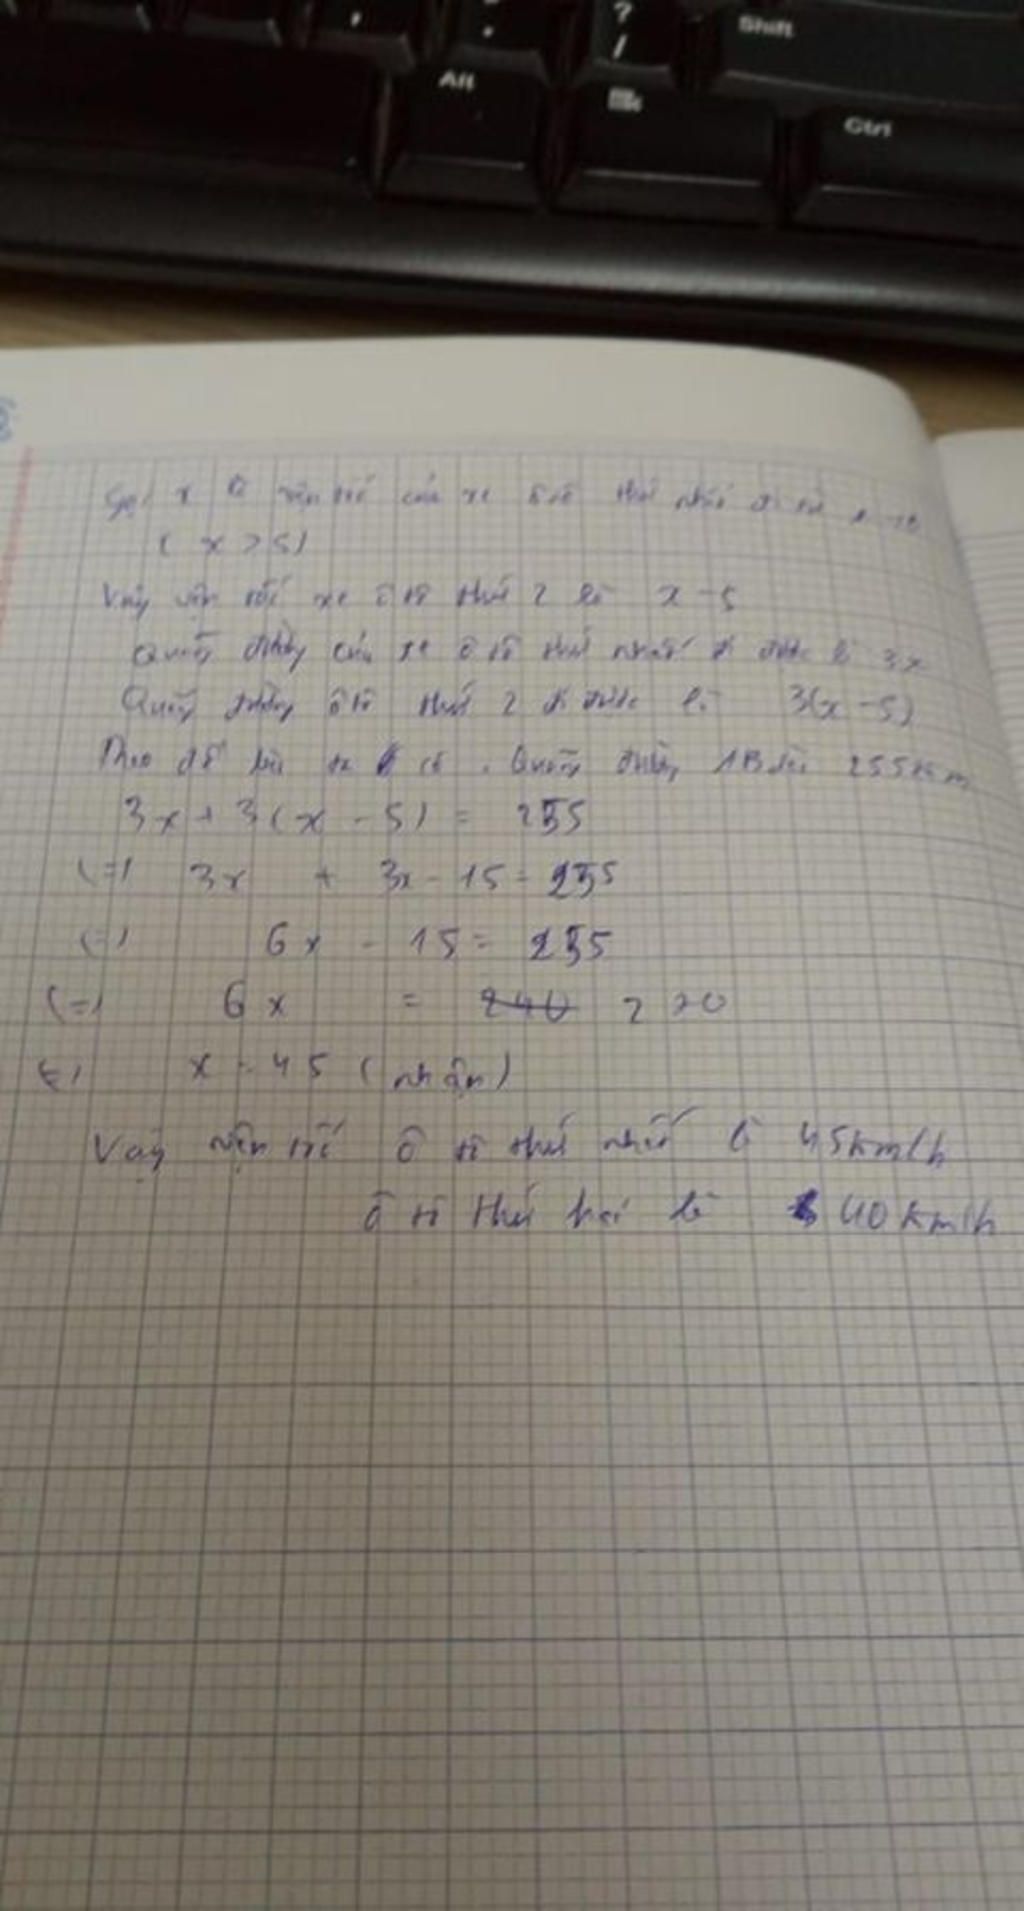 ,
?
/
Shift
Alt
Ctrl
Gọi x là vận tốc của xe ô tô thứ nhất đi từ A → B
( x > 5)
Vậy vận tốc xe ô tô thứ 2 là x - 5
Quãng đường của xe ô tô thứ nhất đi được là 3x
Quãng đường ô tô thứ 2 đi được là 3(x - 5)
Theo đề bài ta có . Quãng đường AB dài 255km
3x + 3(x - 5) = 255
(=) 3x + 3x - 15 = 255
(=) 6x - 15 = 255
(=) 6x = 240 270
(=) x = 45 (nhận)
Vậy vận tốc ô tô thứ nhất là 45km/h
ô tô thứ hai là 40km/h